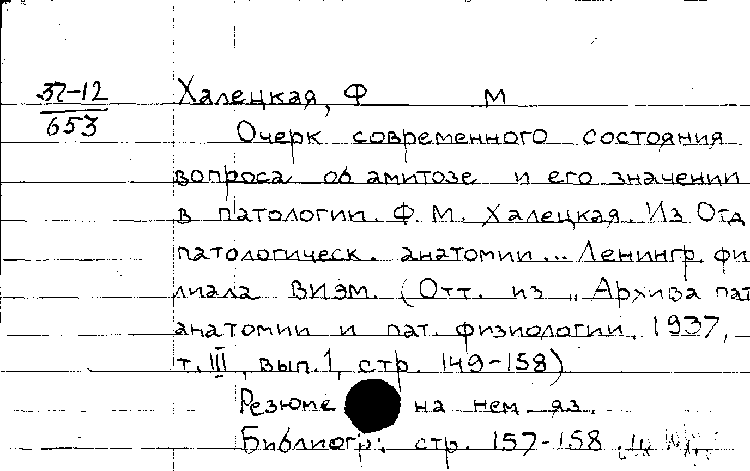 37-12 Халецкая, Ф М
653
Очерк современного состояния
вопроса об амитозе и его значении
в патологии. Ф. М. Халецкая. Из Отд
патологическ. анатомии... Ленингр. фи
лиала ВИЭМ. (Отт. из „Архива пат
анатомии и пат. физиологии, 1937,
т. III, вып. 1, стр. 149-158)
Резюме на нем яз.
Библиогр: стр. 157-158